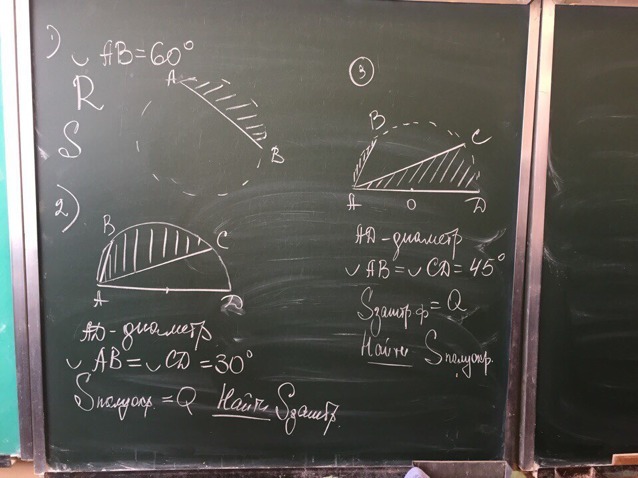 1) ◡ AB = 60°
R
S
A
B
2)
B
C
A
D
AD - диаметр
◡ AB = ◡ CD = 30°
Sполукр. = Q Найти Sзаштр.
3
B
C
A
O
D
AD - диаметр
◡ AB = ◡ CD = 45°
Sзаштр.ф = Q
Найти Sполукр.